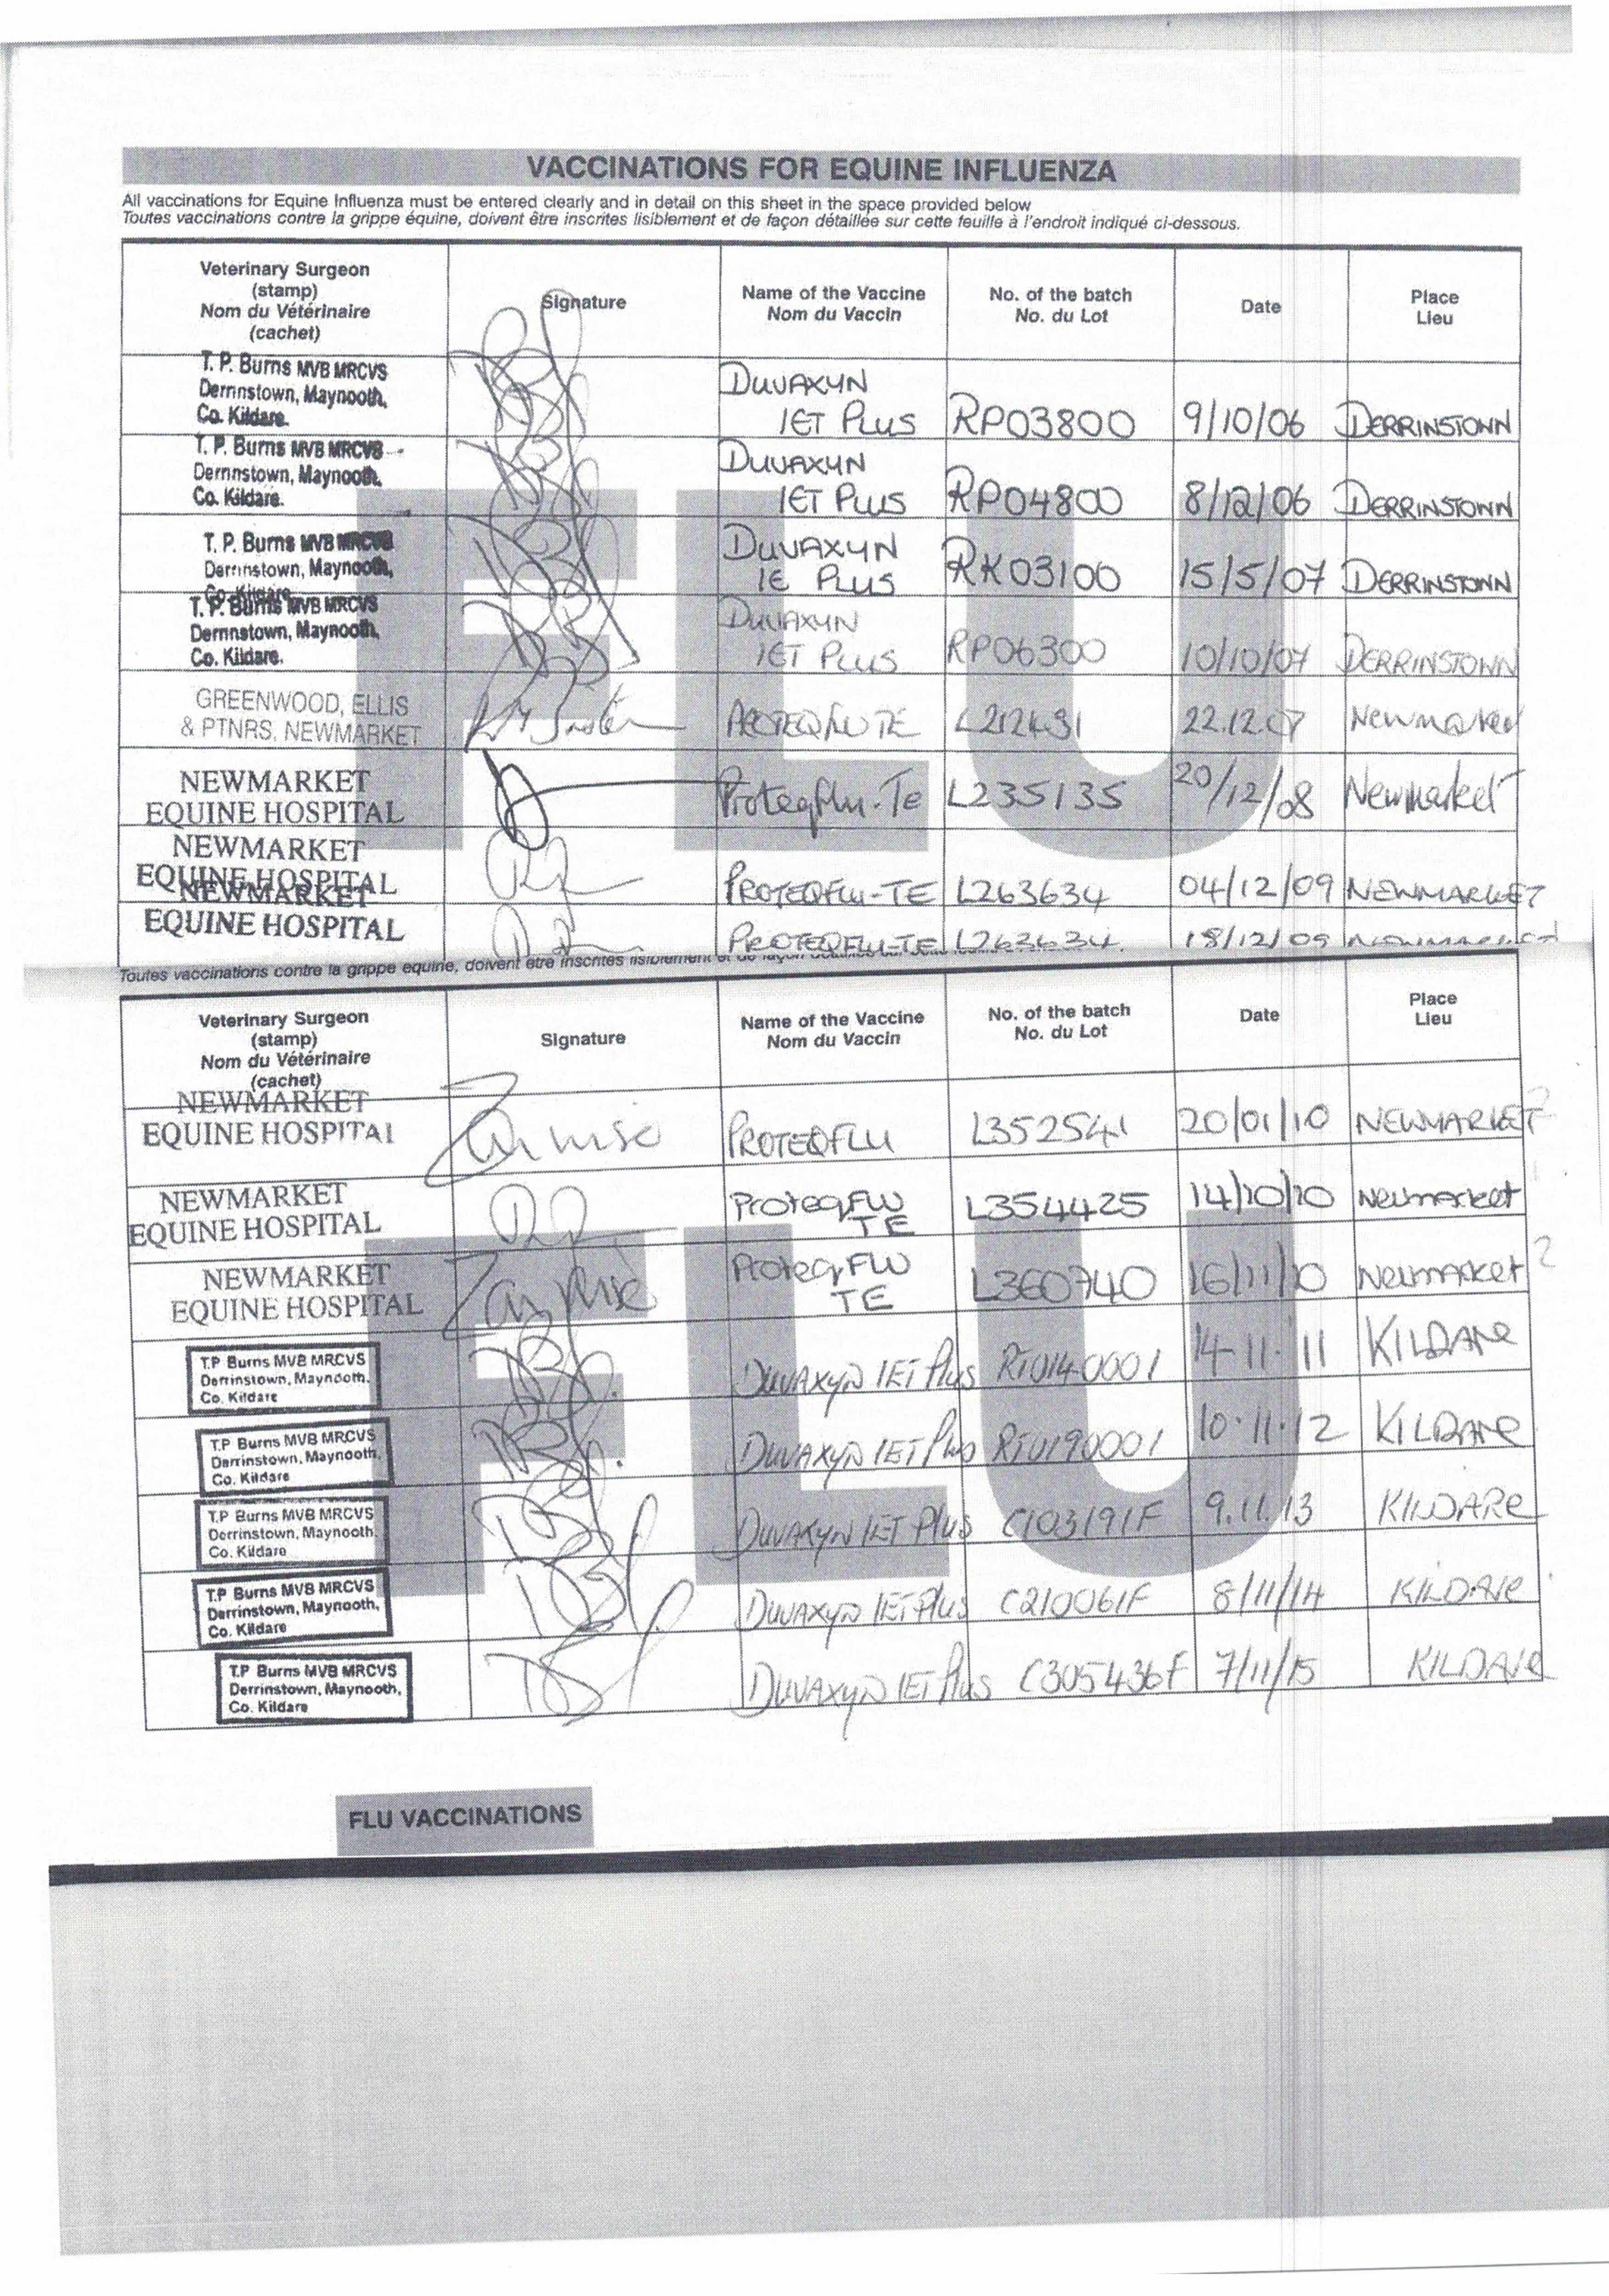 VACCINATIONS FOR EQUINE INFLUENZA
All vaccinations for Equine Influenza must be entered clearly and in detail on this sheet in the space provided below
Toutes vaccinations contre la grippe équine, doivent être inscrites lisiblement et de façon détaillée sur cette feuille à l'endroit indiqué ci-dessous.
Veterinary Surgeon
(stamp)
Nom du Vétérinaire
(cachet)
Signature
Name of the Vaccine
Nom du Vaccin
No. of the batch
No. du Lot
Date
Place
Lieu
T. P. Burns MVB MRCVS
Derrinstown, Maynooth,
Co. Kildare.
DUVAXYN
IET PLUS RP03800 9/10/06 DERRINSTOWN
T. P. Burns MVB MRCVS
Derrinstown, Maynooth,
Co. Kildare.
DUVAXYN
IET PLUS RP04800 8/12/06 DERRINSTOWN
T. P. Burns MVB MRCVS
Derrinstown, Maynooth,
Co. Kildare
DUVAXYN
IE PLUS RK03100 15/5/07 DERRINSTOWN
T. P. Burns MVB MRCVS
Derrinstown, Maynooth,
Co. Kildare.
DUVAXYN
IET PLUS RP06300 10/10/07 DERRINSTOWN
GREENWOOD, ELLIS
& PTNRS, NEWMARKET
L212431 22.12.07 Newmarket
NEWMARKET
EQUINE HOSPITAL
Proteqflu-Te L235135 20/12/08 Newmarket
NEWMARKET
EQUINE HOSPITAL
PROTEQFLU-TE L263634 04/12/09 NEWMARKET
NEWMARKET
EQUINE HOSPITAL
PROTEQFLU-TE L263634. 18/12/09 NEWMARKET
FLU
Toutes vaccinations contre la grippe équine, doivent être inscrites lisiblement et de façon
Veterinary Surgeon
(stamp)
Nom du Vétérinaire
(cachet)
Signature
Name of the Vaccine
Nom du Vaccin
No. of the batch
No. du Lot
Date
Place
Lieu
NEWMARKET
EQUINE HOSPITAL
PROTEQFLU L352541 20/01/10 NEWMARKET ?
NEWMARKET
EQUINE HOSPITAL
ProteqFLU
TE
L354425 14/10/10 Newmarket
NEWMARKET
EQUINE HOSPITAL
ProteqFLU
TE
L360740 16/11/10 Newmarket ?
T.P Burns MVB MRCVS
Derrinstown, Maynooth.
Co. Kildare
DUVAXYN IET Plus RT0140001 14.11.11 KILDARE
T.P Burns MVB MRCVS
Derrinstown, Maynooth,
Co. Kildare
DUVAXYN IET Plus RT0190001 10.11.12 KILDARE
T.P Burns MVB MRCVS
Derrinstown, Maynooth.
Co. Kildare
DUVAXYN IET Plus C103191F 9.11.13 KILDARE
T.P Burns MVB MRCVS
Derrinstown, Maynooth,
Co. Kildare
DUVAXYN IET Plus C210061F 8/11/14 KILDARE
T.P Burns MVB MRCVS
Derrinstown, Maynooth,
Co. Kildare
DUVAXYN IET Plus C305436F 7/11/15 KILDARE
FLU
FLU VACCINATIONS